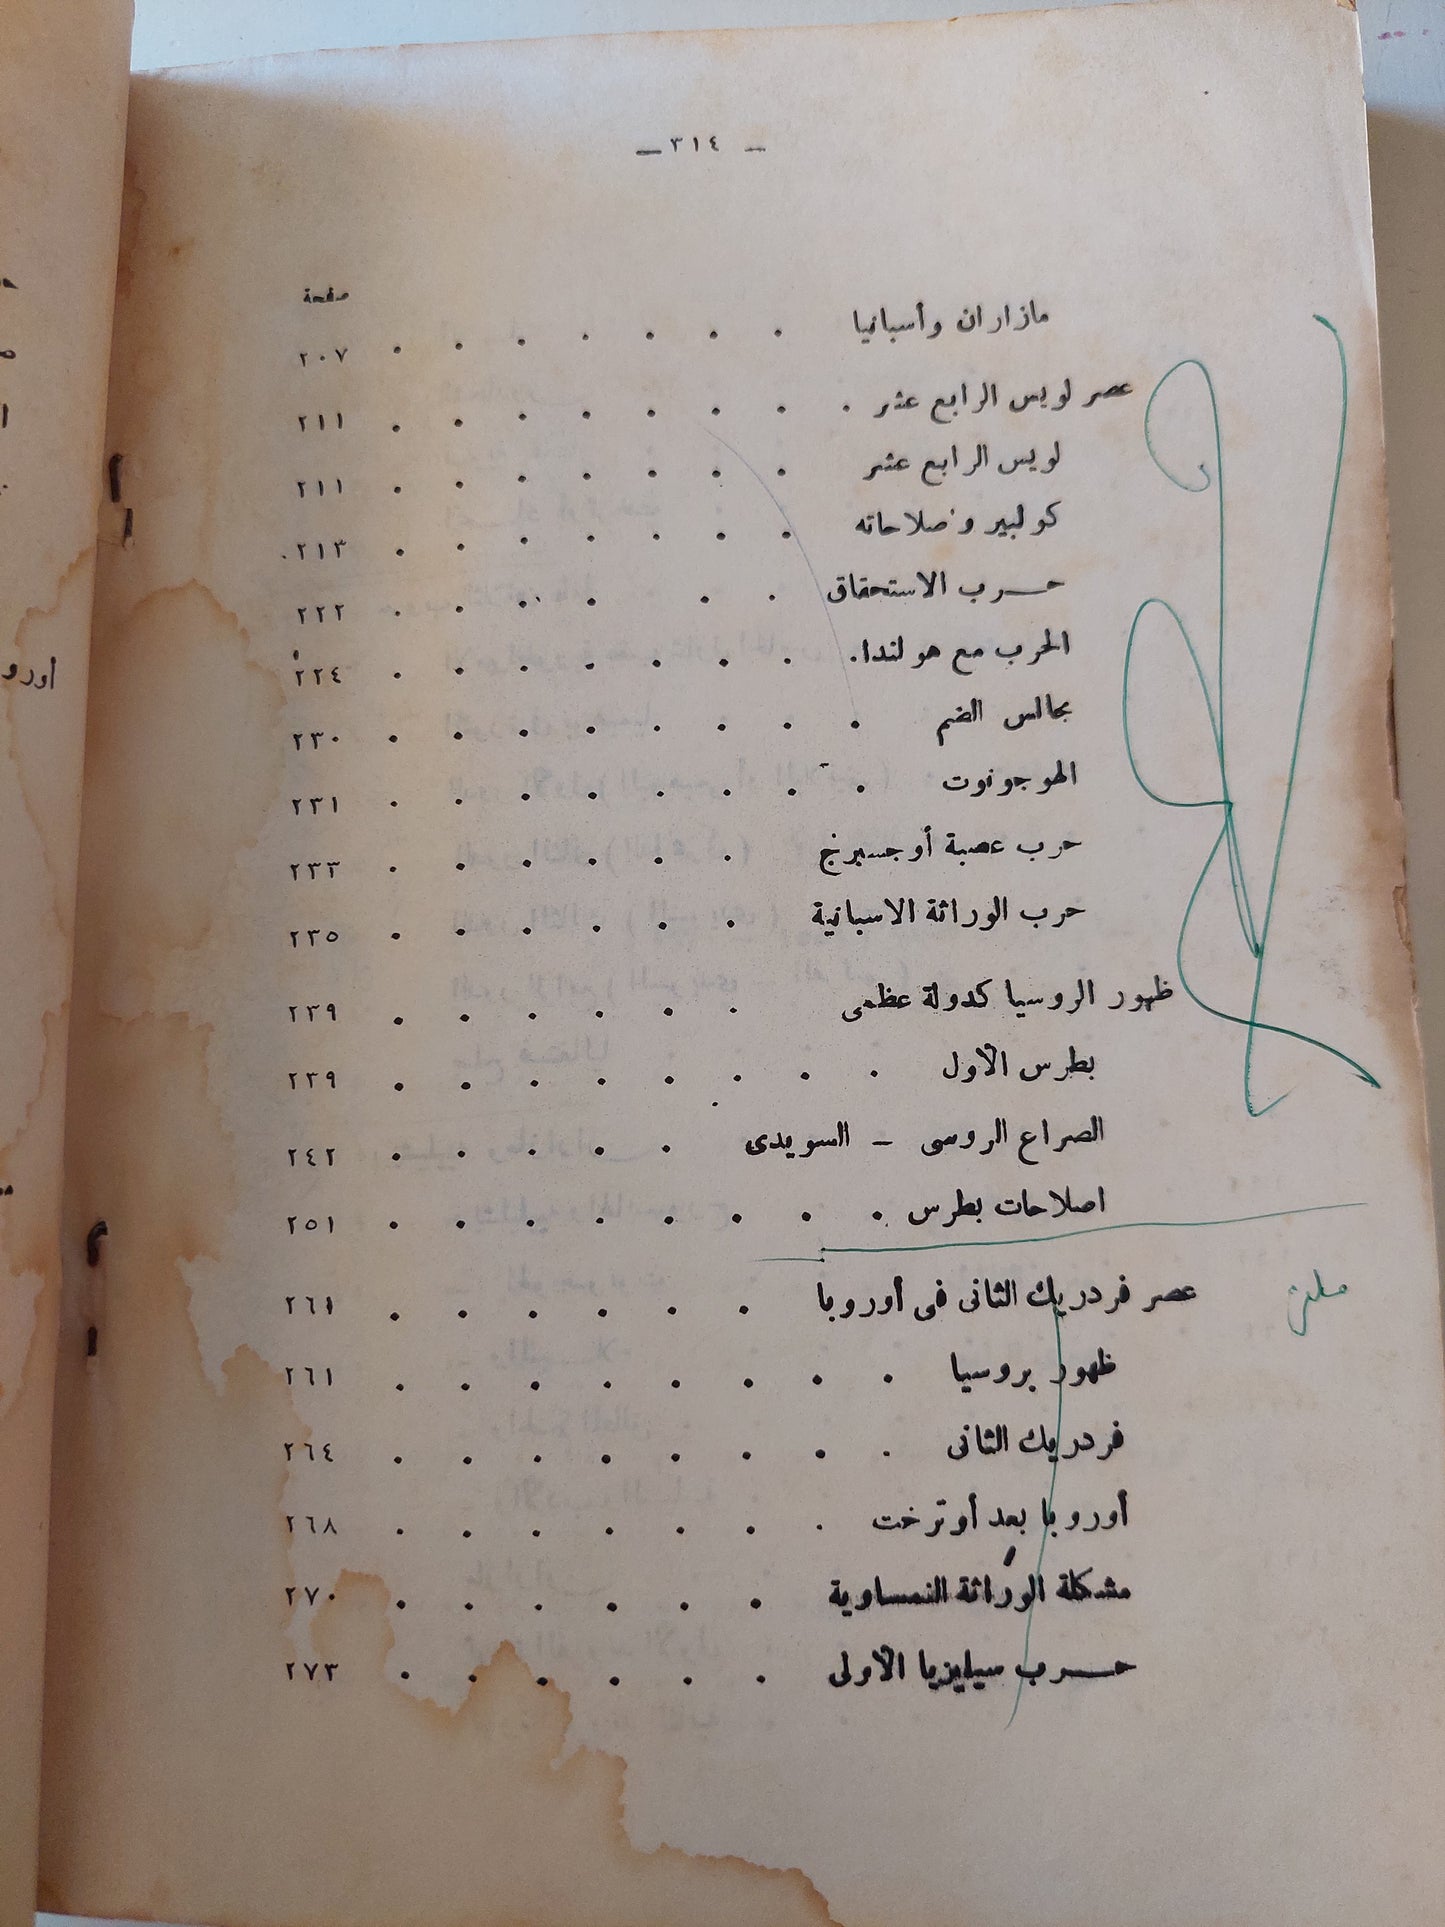 ـ ٣١٤ ـ
صفحة
مازاران وأسبانيا . . . . . . . ٢٠٧
عصر لويس الرابع عشر . . . . . . . . ٢١١
لويس الرابع عشر . . . . . . . ٢١١
كولبير وصلاحاته . . . . . . . ٢١٣
حرب الاستحقاق . . . . . . ٢٢٢
الحرب مع هولندا . . . . . . . . ٢٢٤
مجالس الضم . . . . . . . . ٢٣٠
الهوجونوت . . . . . . . . ٢٣١
حرب عصبة أوجسبرج . . . . . . ٢٣٣
حرب الوراثة الاسبانية . . . . . . ٢٣٥
ظهور الروسيا كدولة عظمى . . . . . . ٢٣٩
بطرس الأول . . . . . . . . ٢٣٩
الصراع الروسى ـ السويدى . . . . . ٢٤٢
اصلاحات بطرس . . . . . . . . ٢٥١
عصر فردريك الثانى فى أوروبا . . . . . . ٢٦١
ظهور بروسيا . . . . . . . . ٢٦١
فردريك الثانى . . . . . . . . ٢٦٤
أوروبا بعد أوترخت . . . . . . . ٢٦٨
مشكلة الوراثة النمساوية . . . . . . ٢٧٠
حرب سيليزيا الأولى . . . . . . ٢٧٣
اورو